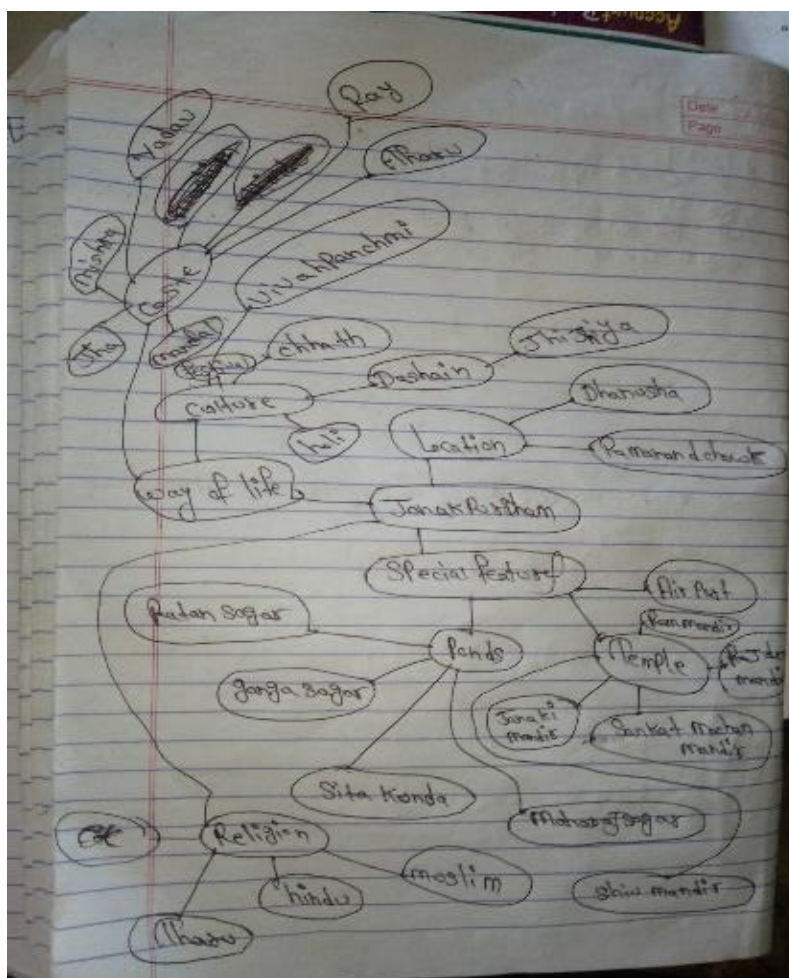 Account
Date
Page
Ray
Yadav
Tharu
Mishra
VivahPanchmi
Caste
Jha
mandal
festival
chhath
Jhijhiya
Dashain
Culture
holi
Dhanusha
Location
Ramanand chowk
way of life
JanakPurdham
Special feature
Air Port
Ratan Sagar
Ram mandir
Ponds
Temple
ganga sagar
Janaki
mandir
Sankat mochan
mandir
Sita Konda
Maharaj sagar
Religion
moslim
hindu
Shiv mandir
Tharu